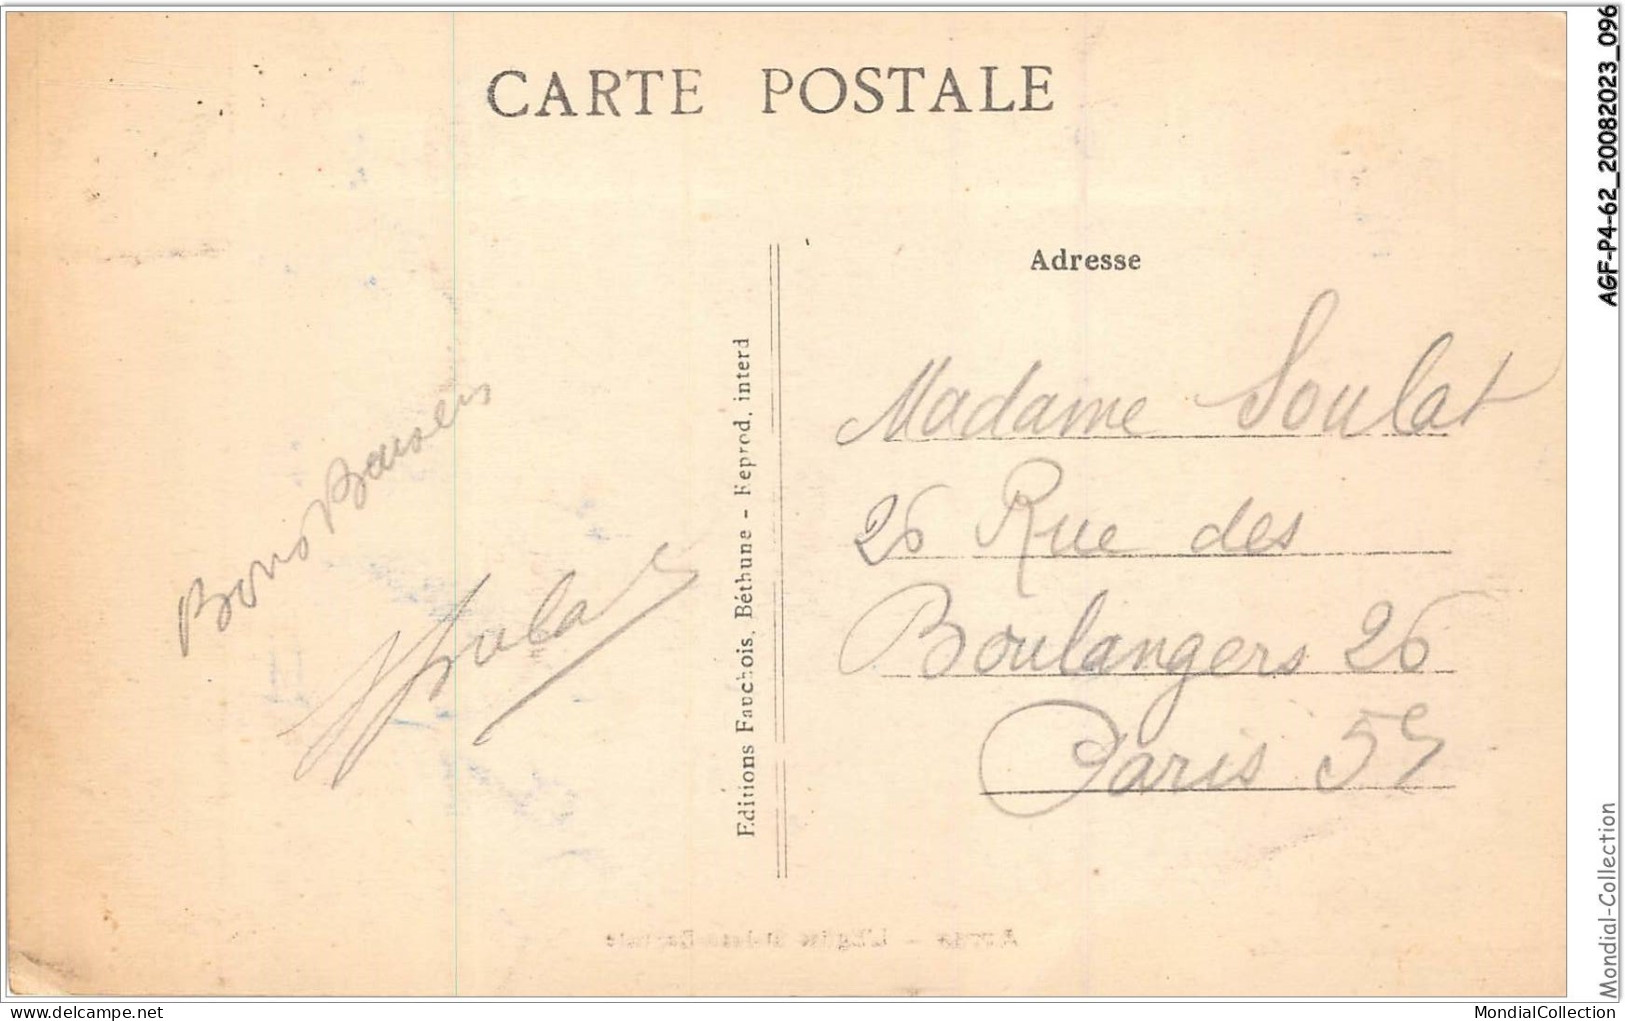 CARTE POSTALE
Adresse
Bons Baisers
Editions Fauchois, Béthune - Reprod. interd
Madame Soulat
26 Rue des
Boulangers 26
Paris 5
AGF-P4-62_20082023_096
Mondial-Collection
delcampe.net
MondialCollection